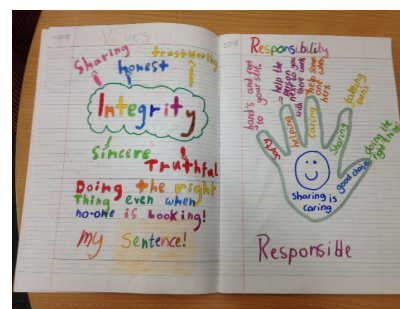 Values
Sharing
honest
trustworthy
Integrity
sincere
Truthful
Doing the right
Thing even when
no-one is booking!
My Sentence!
Responsibility
hand's and feet
to your self.
help the
person
next to you
with there work
help some
one when
hert
talking
turns
doing the
right thing
helping
caring
Sharing
good choices
sharing is
caring
Responsible